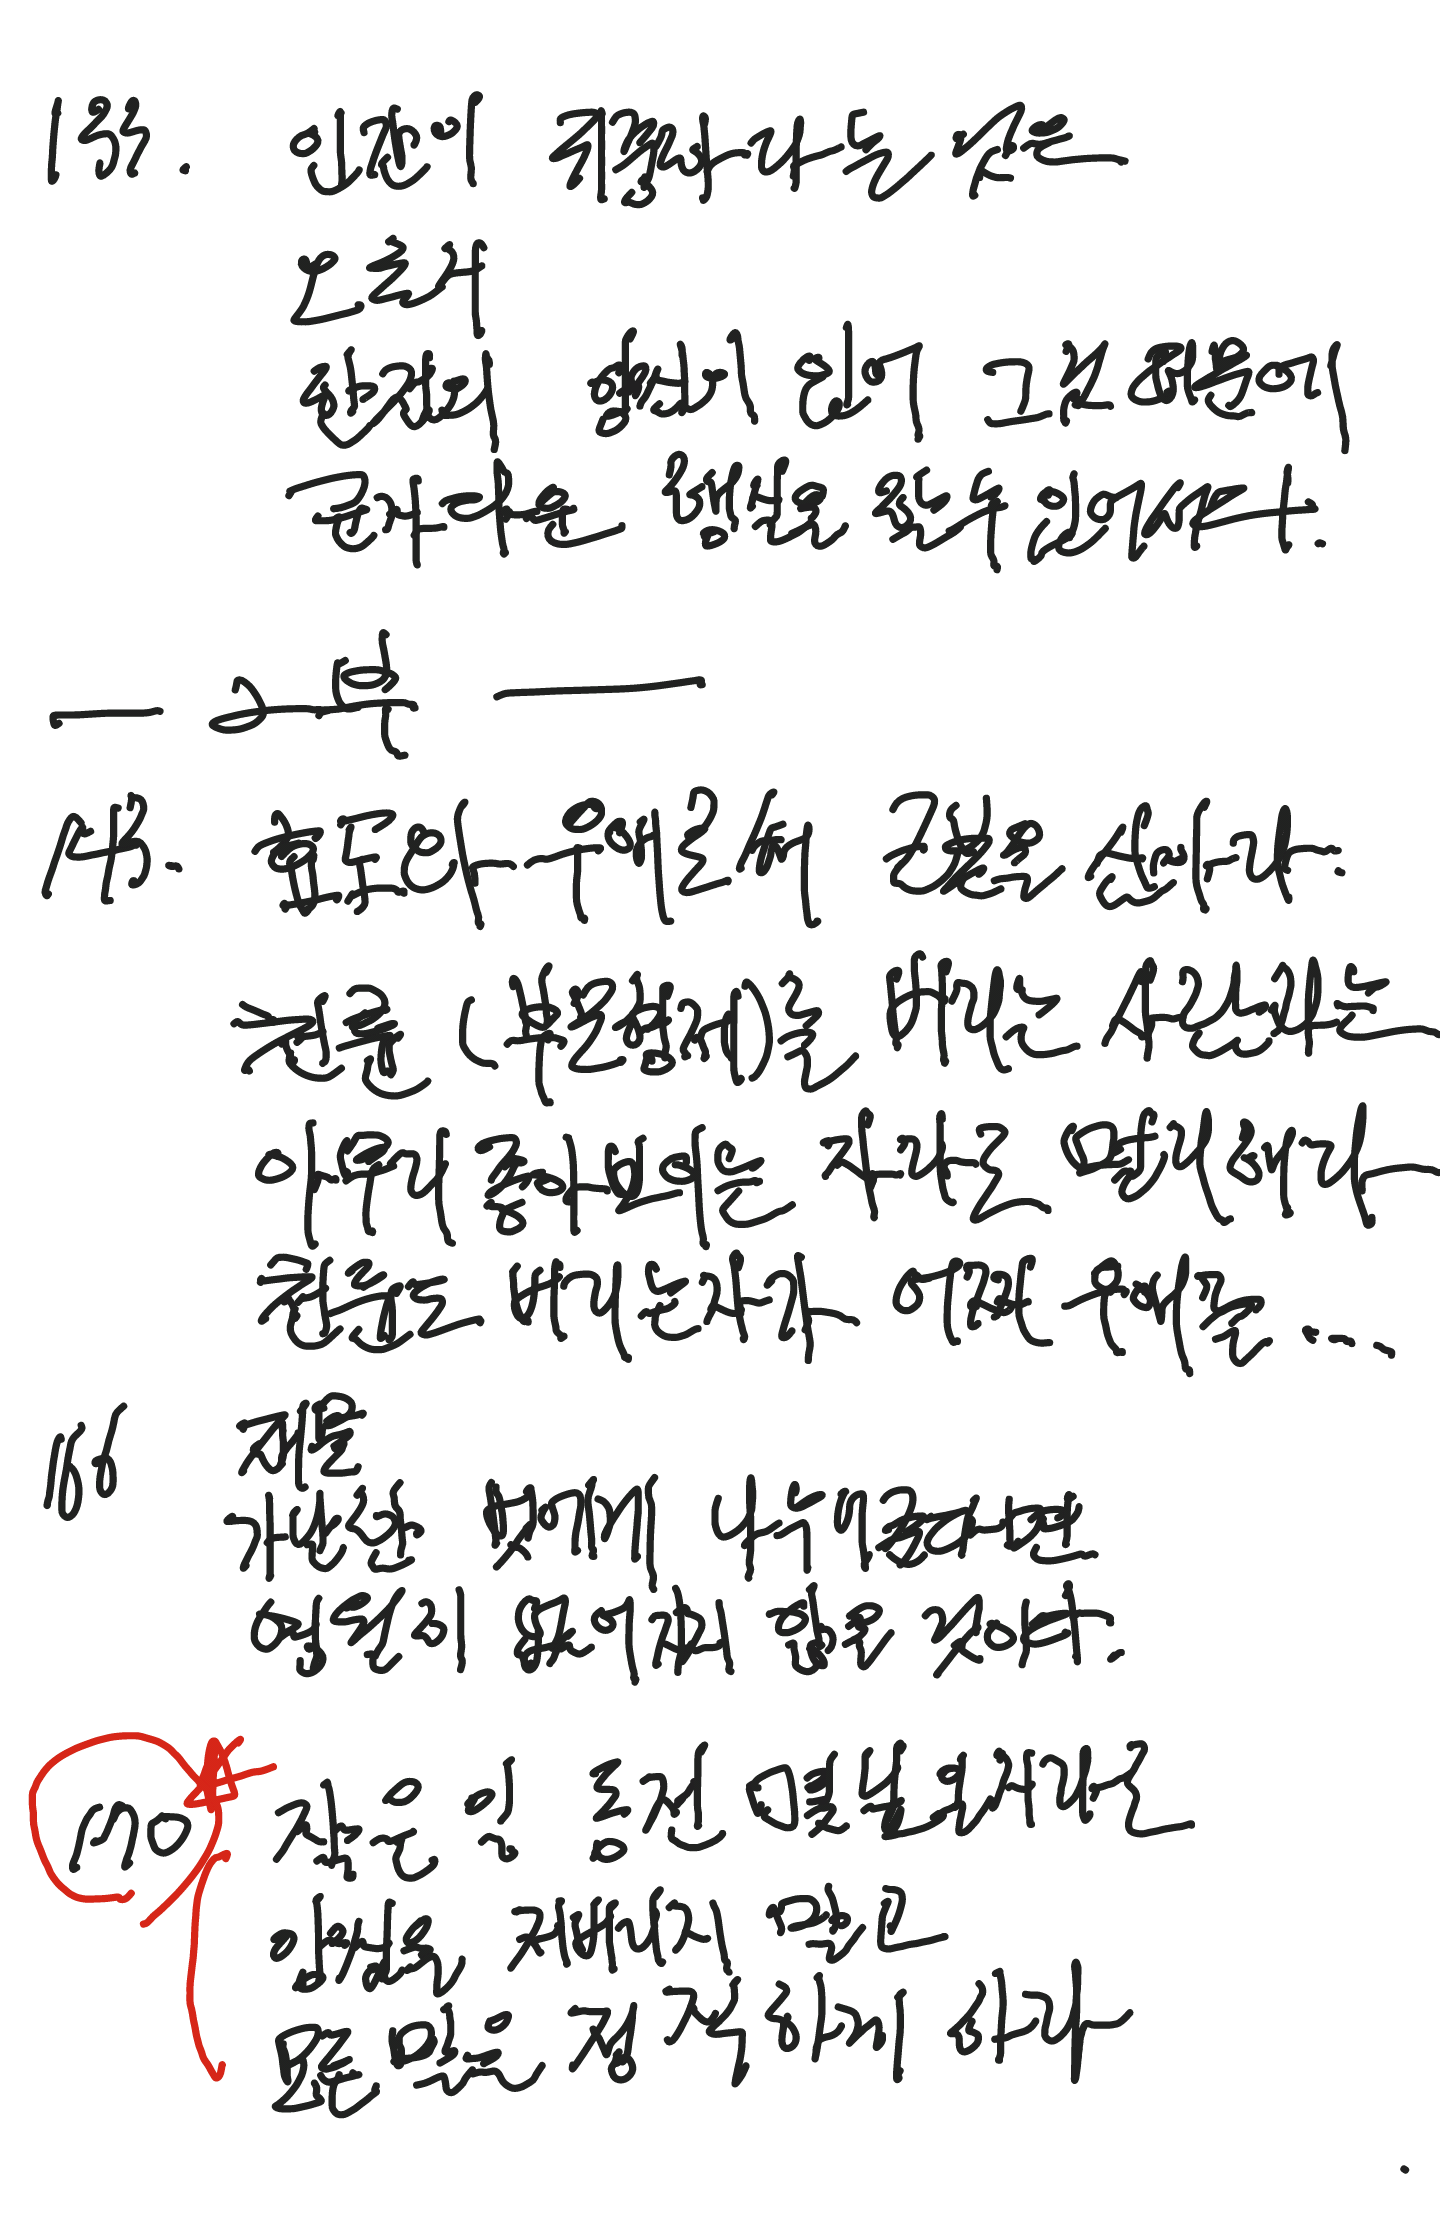 133. 인간이 귀중하다는 것은
오로지
한 점의 양심이 있어 그것 때문에
군자다운 행실을 할 수 있어서다.
— 2부 —
143. 효도와 우애로써 근본을 삼아라.
천륜 (부모형제)를 버리는 사람과는
아무리 좋아 보이는 자라로 멀리해라
천륜도 버리는 자가 어찌 우애를 ....
166 재물
가난한 벗에게 나누어 준다면
영원히 없어지지 않을 것이다.
170 작은 일 동전 몇 닢 일지라도
양심을 저버리지 말고
모든 일을 정직하게 하라